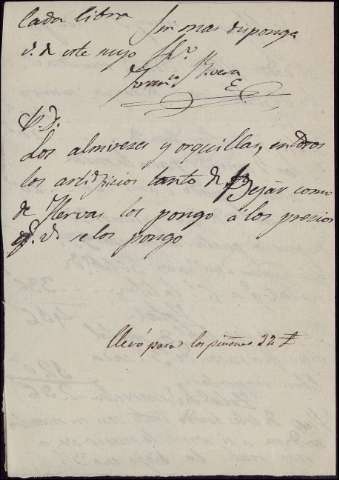 Cada libra Sin mas disponga
v. d. este suyo
Rivera
P. D.
Los almireces y orquillas, en todos
los artificios tanto de Bejár como
de Hervas los pongo á los precios
q.e v. d. se los pongo
llevó para los piñones 22 ℔